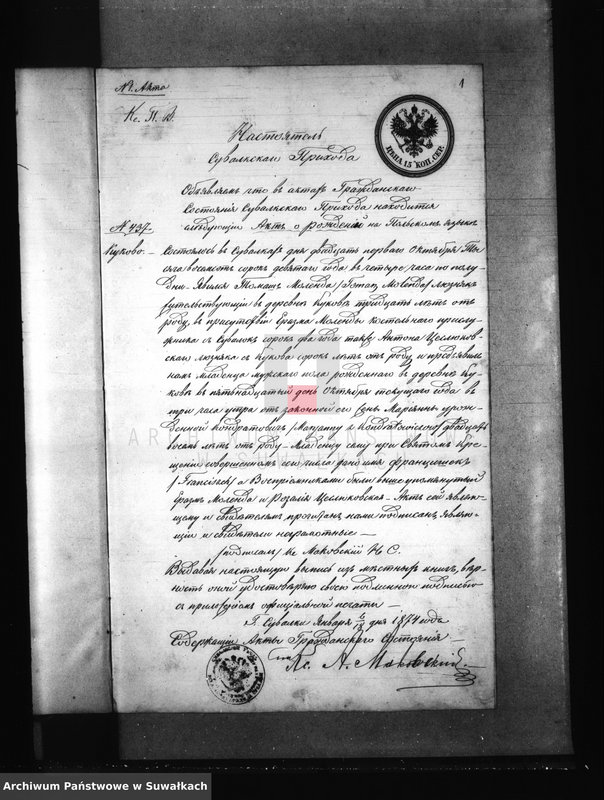 № Акта
1
Кс. П. В.
ЦѢНА 15 КОП. СЕР.
Настоятель
Сувалкскаго Прихода
Объявляетъ что въ актахъ Гражданскаго
Состоянія Сувалкскаго Прихода находится
слѣдующій Актъ о рожденіи на Польскомъ языкѣ
№ 437.
Куково. — Состоялось въ Сувалкахъ дня двадцать перваго Октября Ты-
сяча восемьсотъ сорокъ девятаго года въ четыре часа по полу-
дни. Явился Томашъ Моленда /Tomasz Molenda/
жительствующій въ деревнѣ Куковѣ тридцать лѣтъ отъ
роду, въ присутствіи Еразма Моленды костельнаго прислу-
жника съ Сувалокъ сорокъ два года также Антона Цеслюков-
скаго съ Кукова сорокъ лѣтъ отъ роду и предъявилъ
намъ младенца мужскаго пола рожденнаго въ деревнѣ Ку-
ковѣ въ пятьнадцатый день Октября текущаго года въ
три часа утра отъ законной его жены Маріянны урож-
денной Кондратовичъ /Maryanny z Kondratowiczow/ двадцать
восемь лѣтъ отъ роду. — Младенцу сему при Святомъ Кре-
щеніи совершенномъ сего числа дано имя Францишекъ
/Franciszek/ а Воспріемниками были вышеупомянутый
Еразмъ Моленда и Розалія Цеслюковская. — Актъ сей являю-
щему и свидѣтелямъ прочитанъ нами подписанъ являю-
щій и свидѣтели неграмотные. —
/подписалъ/ Кс Маковскій
Выдавая настоящую выпись изъ мѣстныхъ книгъ, вѣр-
ность оной удостовѣряю своею подлинною подписью
съ приложеніемъ оффиціальной печати —
Г. Сувалки Января 6/18 дня 1874 года
Содержащій Акты Гражданскаго Состоянія —
Кс. А. Маковскій
Archiwum Państwowe w Suwałkach